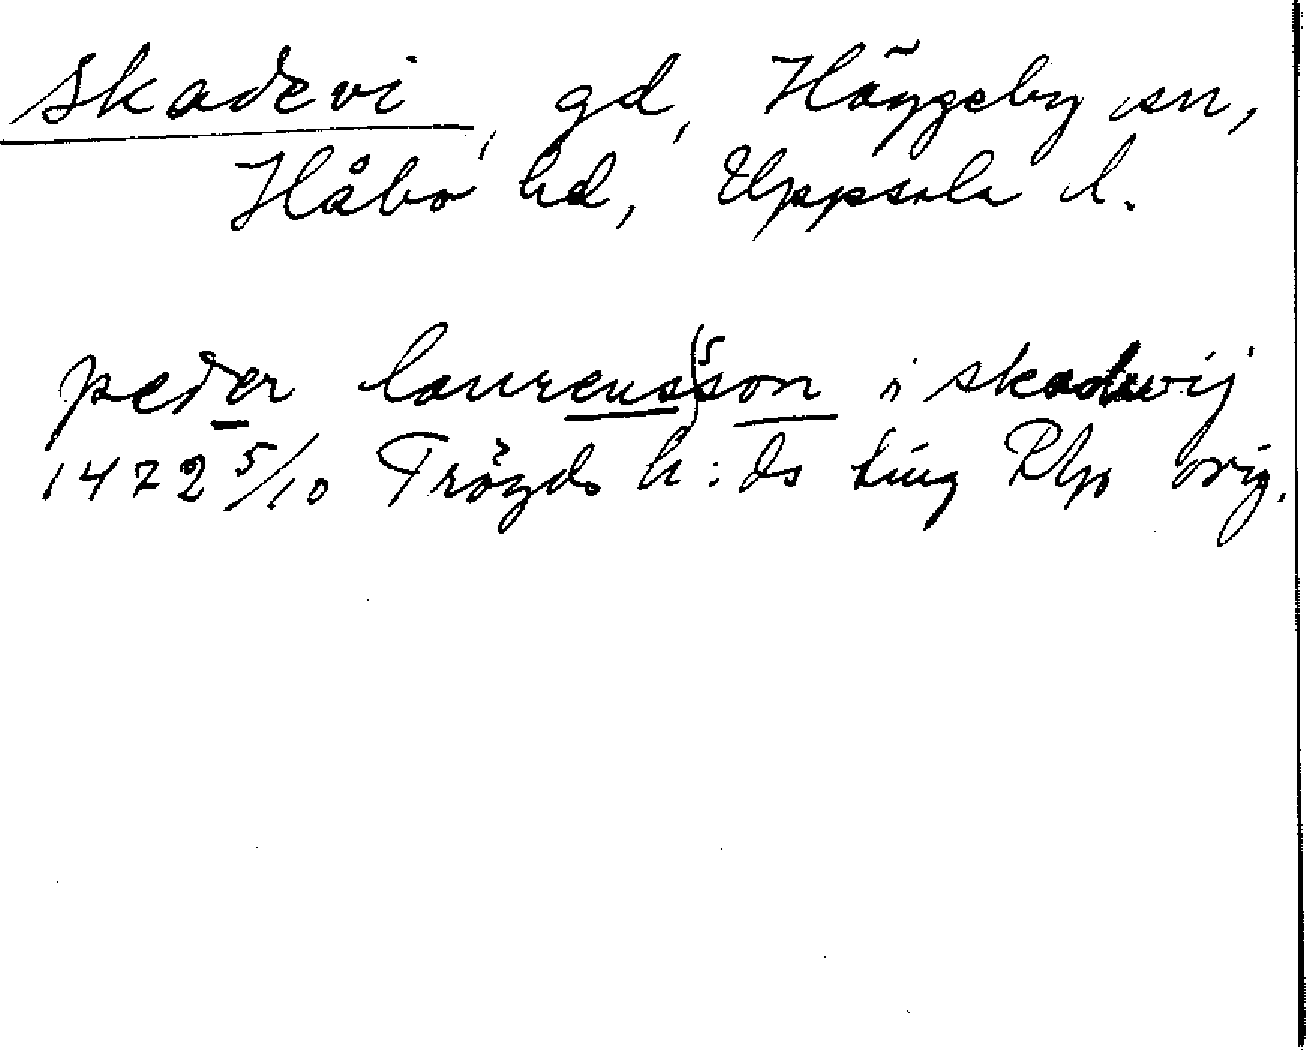 Skadevi, gd, Häggeby sn,
Håbo hd, Uppsala l.
peder laurensson i skadevij
1472 5/10 Trögds h:ds ting Rkp orig.